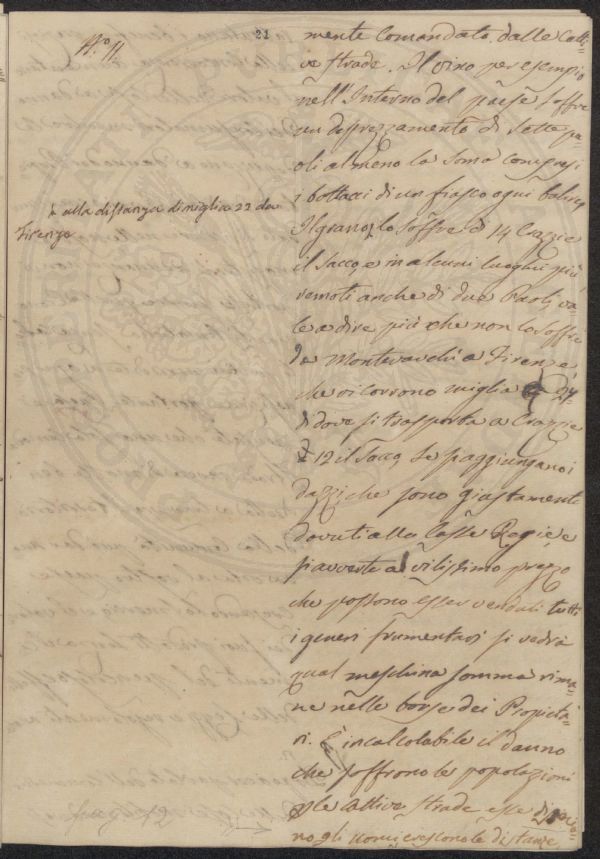 N.º 11.
21
mente comandato dalle Catti-
ve strade. Il vino per esempio
nell'Interno del paese soffre
un disprezzamento di sette pa-
oli almeno la soma compresi
i bottacci di un fiasco ogni
Il grano lo soffre di 14 Crazzie
il sacco, e in alcuni luoghi più
remoti anche di due Paoli, va-
le a dire più che non lo soffre
da Montevarchi a Firenze,
che vi corrono miglia
di dove si trasporta a Crazzie
12 il sacco, se s'aggiungano i
dazzi che sono giustamente
dovuti alla Cassa Regia e
si avverte al vilissimo prezzo
che possono esser venduti tutti
i generi frumentari si vedrà
qual meschina somma rima-
ne nelle borse dei Proprieta-
ri. È incalcolabile il danno
che soffrono le popolazioni
p le Cattive strade esse
no gli uomini e le distanze
alla distanza di miglia 22 da
Firenze